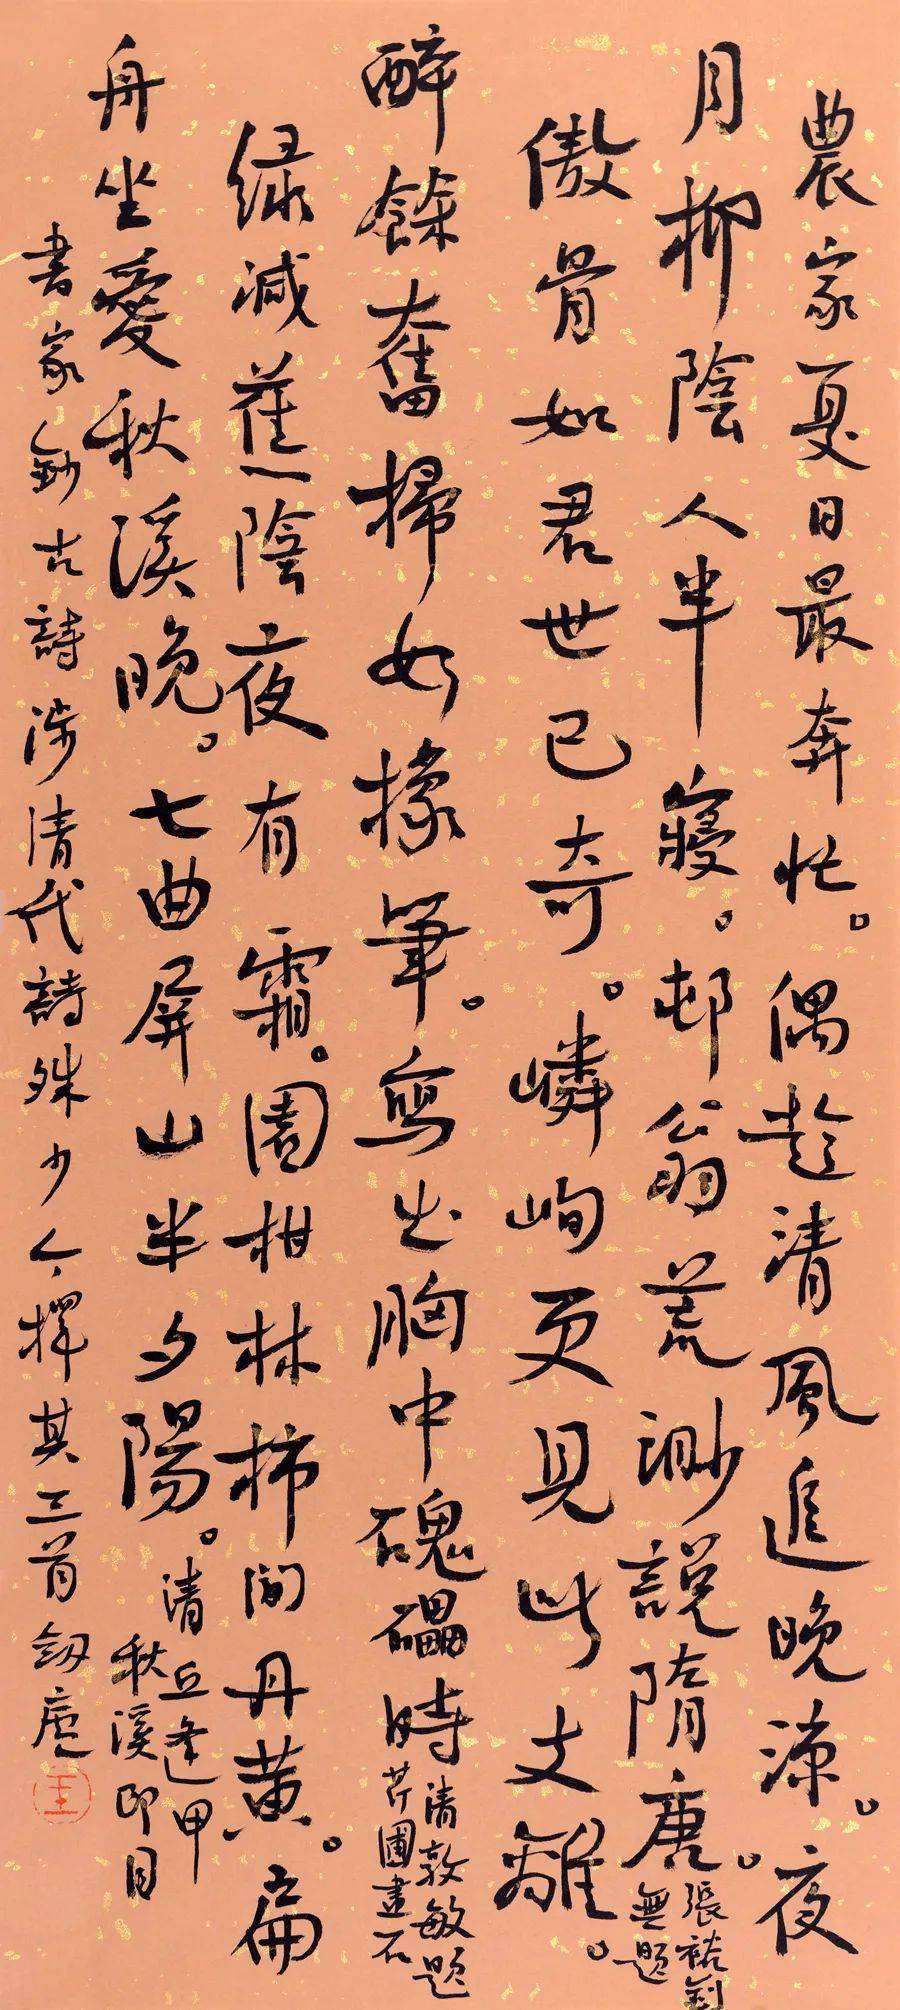 農家夏日最奔忙。偶趁清風追晚涼。夜
月柳陰人半寢。邨翁荒渺說隋唐。
張祐釗
無題
傲骨如君世已奇。嶙峋更見此支離。
醉餘奮掃如椽筆。寫出胸中磈礧時
清敦敏題
芹圃畫石
綠減蕉陰夜有霜。園柑林柿間丹黃。扁
舟坐愛秋溪晚。七曲屏山半夕陽。
清丘逢甲
秋溪即目
書家鈔古詩涉清代詩殊少今擇其三首 庵
王